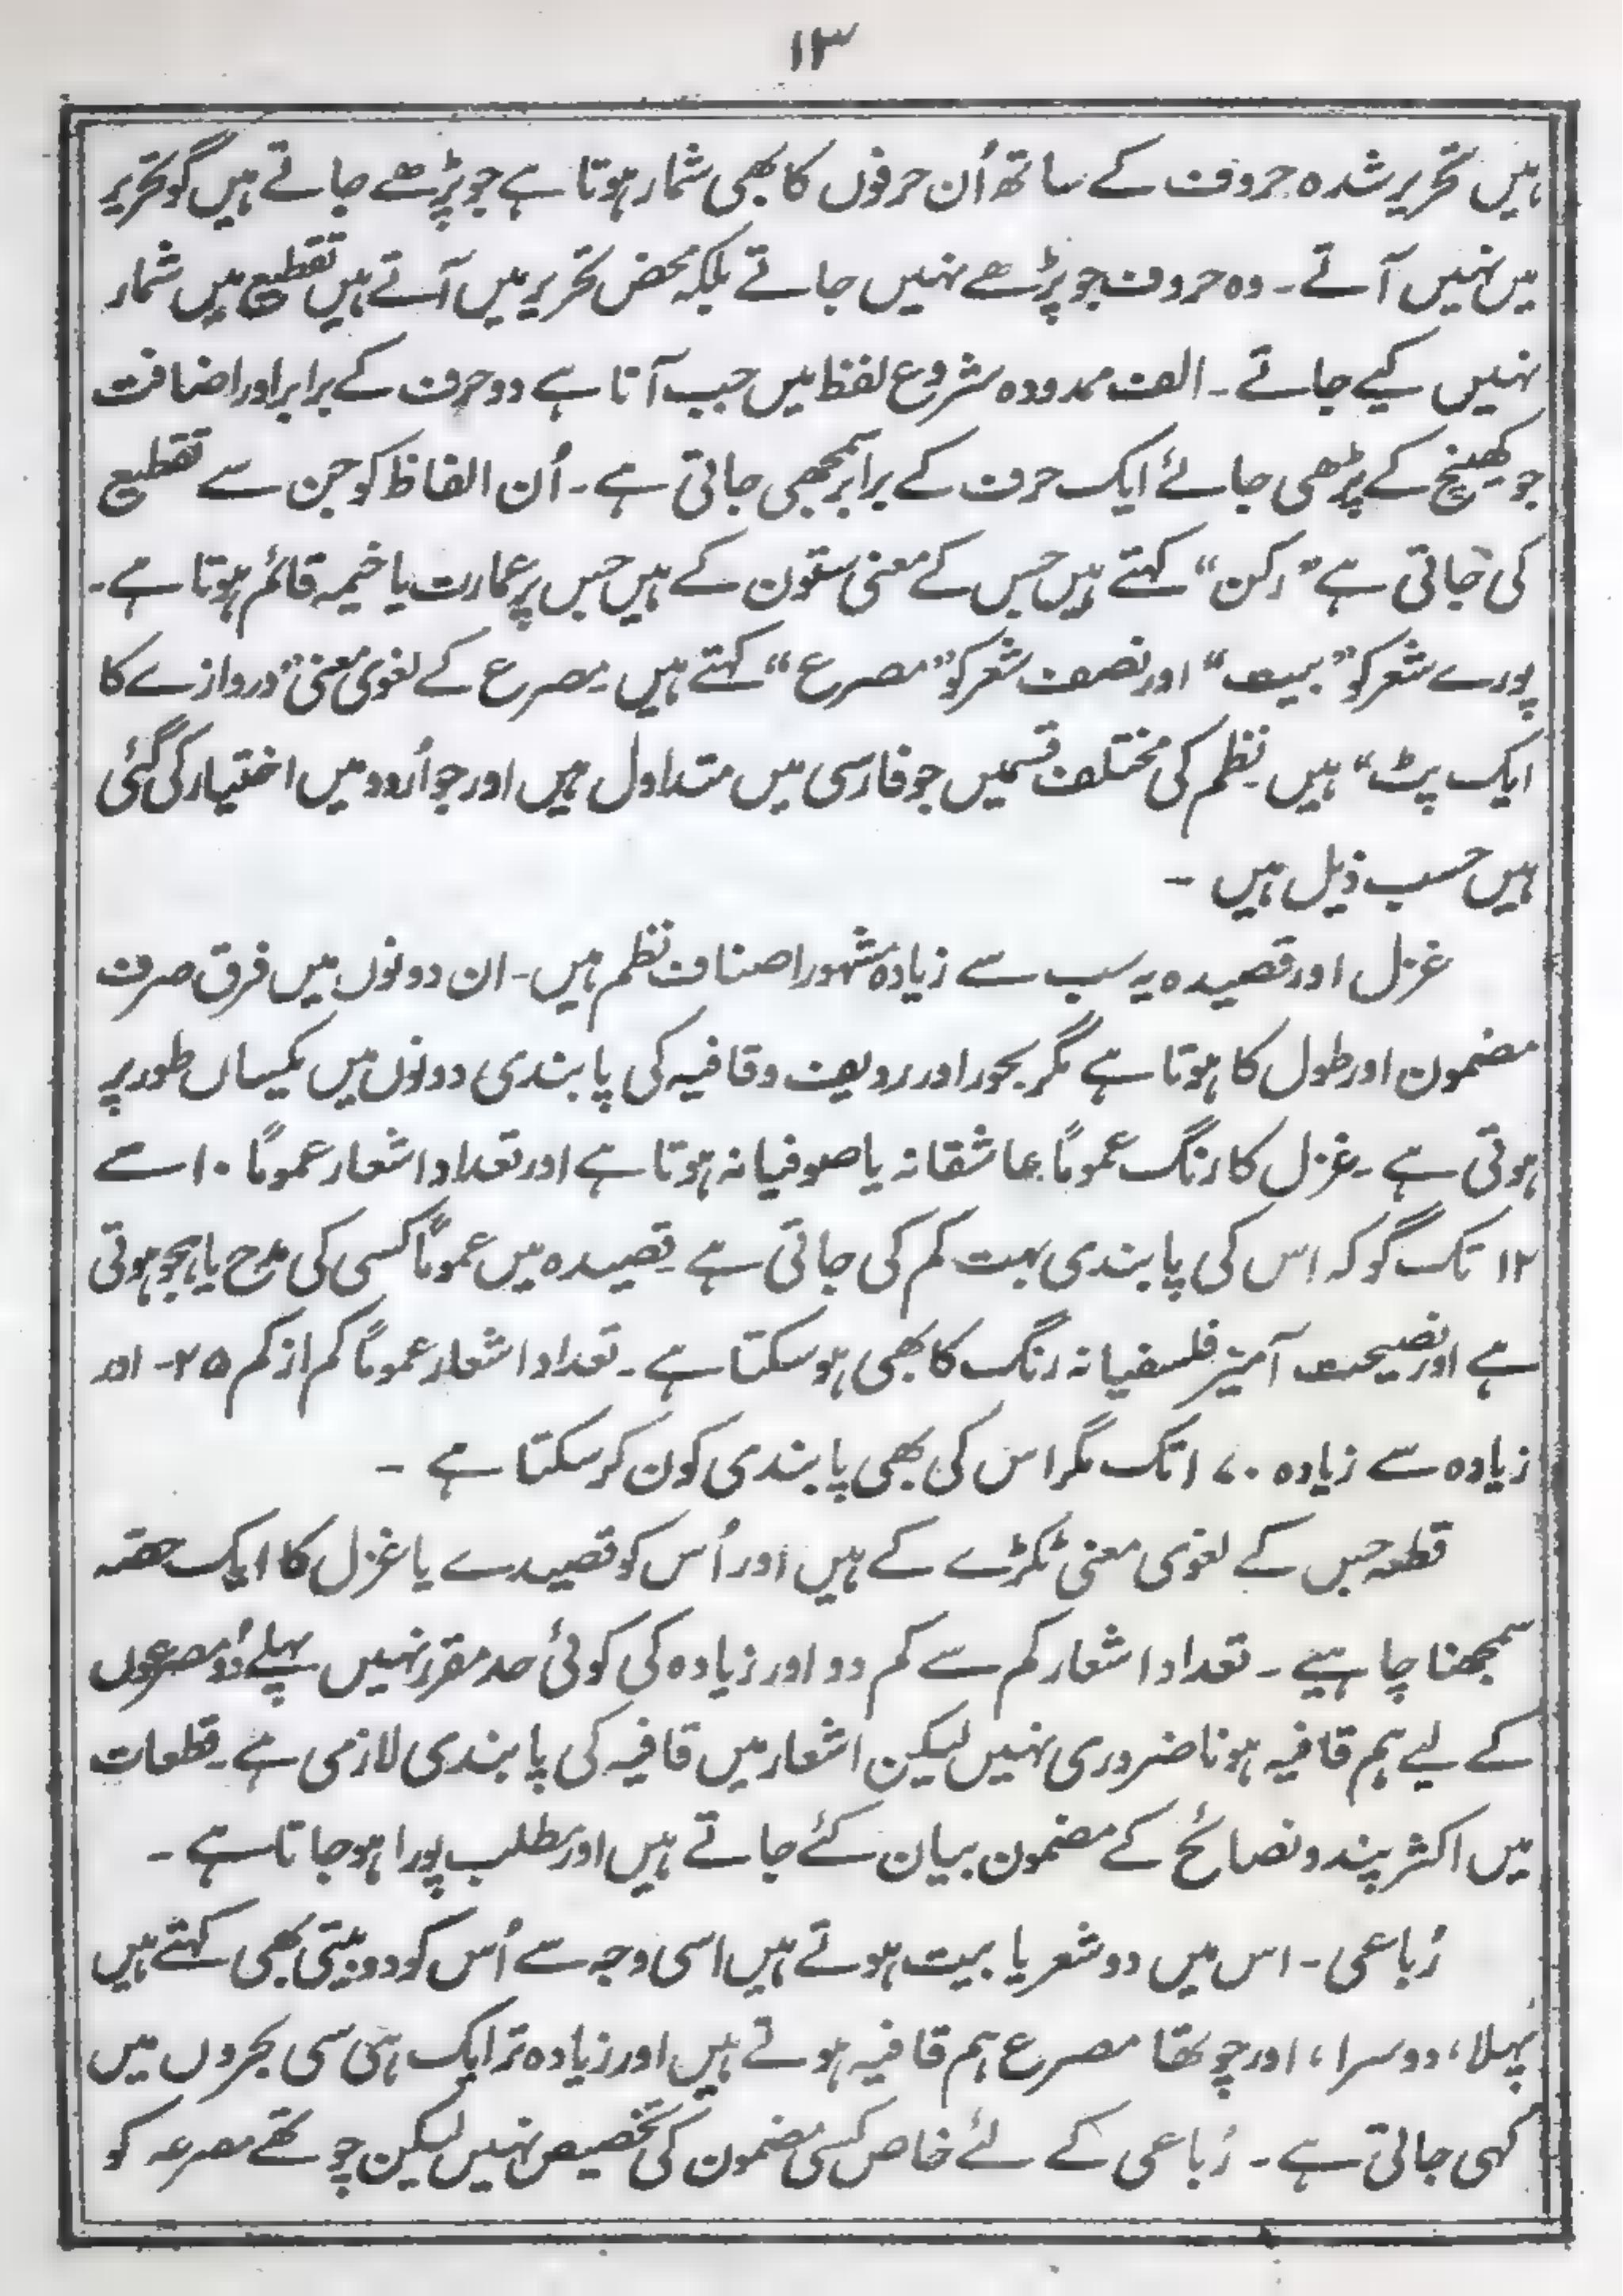 ۱۳
ہیں تحریر شدہ حروف کے ساتھ اُن حرفوں کا بھی شمار ہوتا ہے جو پڑھے جاتے ہیں گو تحریر
میں نہیں آتے۔ وہ حروف جو پڑھے نہیں جاتے بلکہ محض تحریر میں آتے ہیں تقطیع میں شمار
نہیں کیے جاتے۔ الف ممدودہ شروع لفظ میں جب آتا ہے دو حرف کے برابر اور اضافت
جو کھینچ کے پڑھی جائے ایک حرف کے برابر سمجھی جاتی ہے۔ اُن الفاظ کو جن سے تقطیع
کی جاتی ہے "رکن" کہتے ہیں جس کے معنی ستون کے ہیں جس پر عمارت یا خیمہ قائم ہوتا ہے۔
پورے شعر کو "بیت" اور نصف شعر کو "مصرع" کہتے ہیں۔ مصرع کے لغوی معنی "دروازے کا
ایک پٹ" ہیں۔ نظم کی مختلف قسمیں جو فارسی میں متداول ہیں اور جو اُردو میں اختیار کی گئی
ہیں حسب ذیل ہیں۔
غزل اور قصیدہ یہ سب سے زیادہ مشہور اصناف نظم ہیں۔ ان دونوں میں فرق صرف
مضمون اور طول کا ہوتا ہے مگر بحور اور ردیف و قافیہ کی پابندی دونوں میں یکساں طور پر
ہوتی ہے۔ غزل کا رنگ عموماً عاشقانہ یا صوفیانہ ہوتا ہے اور تعداد اشعار عموماً ۱۰ سے
۱۲ تک گو کہ اس کی پابندی بہت کم کی جاتی ہے۔ قصیدہ میں عموماً کسی کی مدح یا ہجو ہوتی
ہے اور نصیحت آمیز فلسفیانہ رنگ کا بھی ہو سکتا ہے۔ تعداد اشعار عموماً کم از کم ۲۵۔ اور
زیادہ سے زیادہ ۱۷۰ تک مگر اس کی بھی پابندی کون کر سکتا ہے۔
قطعہ جس کے لغوی معنی ٹکڑے کے ہیں اور اُس کو قصیدے یا غزل کا ایک حصّہ
سمجھنا چاہیے۔ تعداد اشعار کم سے کم دو اور زیادہ کی کوئی حد مقرر نہیں پہلے دُو مصرعوں
کے لیے ہم قافیہ ہونا ضروری نہیں لیکن اشعار میں قافیہ کی پابندی لازمی ہے۔ قطعات
میں اکثر پند و نصائح کے مضمون بیان کئے جاتے ہیں اور مطلب پورا ہو جاتا ہے۔
رُباعی۔ اس میں دو شعر یا بیت ہوتے ہیں اسی وجہ سے اُس کو دو بیتی بھی کہتے ہیں
پہلا، دوسرا، اور چوتھا مصرع ہم قافیہ ہوتے ہیں اور زیادہ تر ایک ہی سی بحروں میں
کہی جاتی ہے۔ رُباعی کے لئے خاص کسی مضمون کی تخصیص نہیں لیکن چوتھے مصرعہ کو